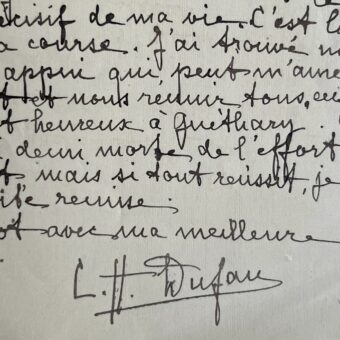 cisif de ma vie. C'est l
a course. J'ai trouvé
appui qui peut m'ame
et nous réunir tous,
t heureux à Guéthary
demi morte de l'effort
t mais si tout réussit, je
ite remise.
ot avec ma meilleure
C.H. Dufau